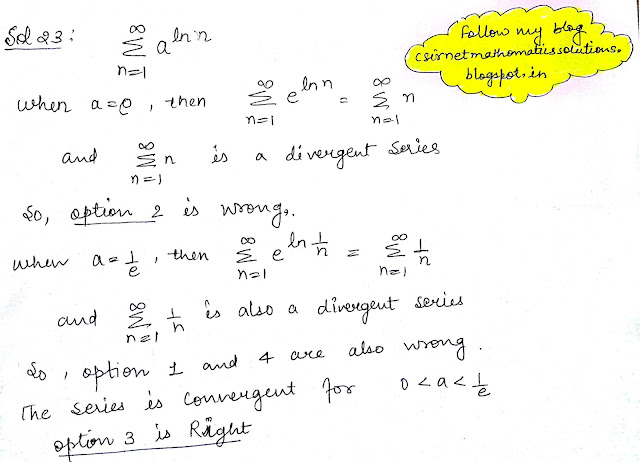 Sol 23: ∞ Σ n=1 a^ln n
Follow my blog
csirnetmathematicssolutions.
blogspot.in
when a=e, then ∞ Σ n=1 e^ln n = ∞ Σ n=1 n
and ∞ Σ n=1 n is a divergent series
So, option 2 is wrong.
when a=1/e, then ∞ Σ n=1 e^ln 1/n = ∞ Σ n=1 1/n
and ∞ Σ n=1 1/n is also a divergent series
So, option 1 and 4 are also wrong.
The series is convergent for 0<a<1/e
option 3 is Right